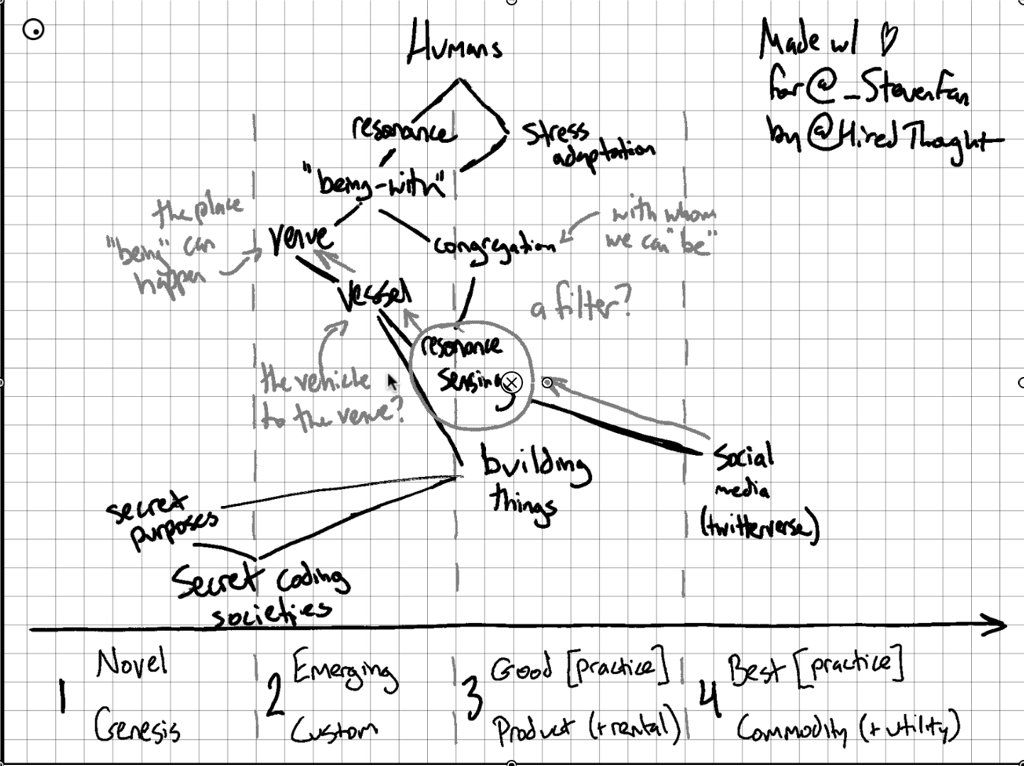 Humans
Made w/ ♡
for @_StevenFan
by @HiredThought
resonance
stress
adaptation
"being-with"
the place
"being" can
happen
venue
congregation
with whom
we can "be"
vessel
a filter?
resonance
sensing
the vehicle
to the venue?
building
things
social
media
(twitterverse)
secret
purposes
Secret coding
societies
1 Novel
Genesis
2 Emerging
Custom
3 Good [practice]
Product (+rental)
4 Best [practice]
Commodity (+utility)